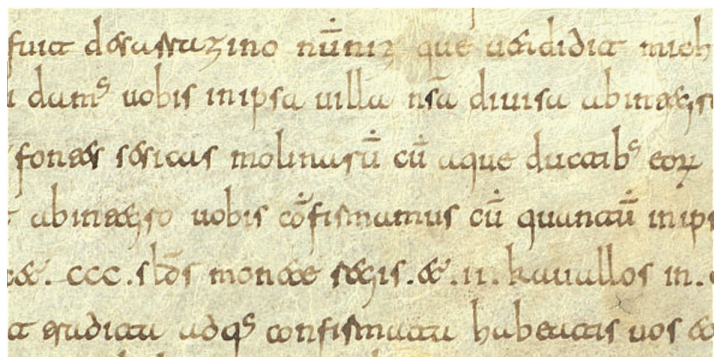 fuit de sarrazino nūniz que uendidit mich
damꝰ uobis in ipsa uilla nr̄a diuisa ab integro
fontes sesicas molinarū cū aque ductibꝰ eoꝝ
ab integro uobis cōfirmamus cū quantū in ips
ccc. slds̄ monete regis. et .ii. kauallos in.
eradicata adqꝰ confirmata habeatis uos